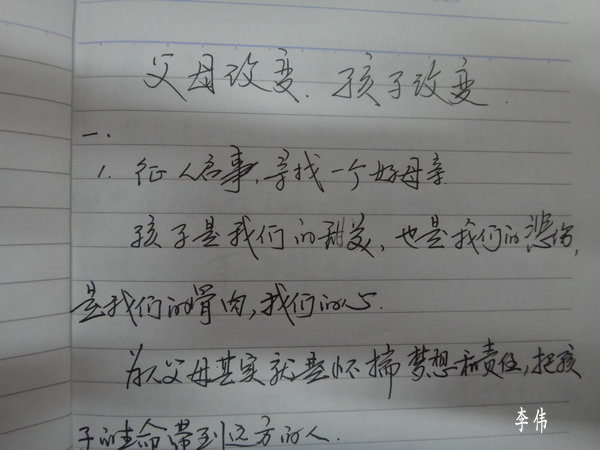 父母改变.孩子改变.
一.
1.征人启事,寻找一个好母亲.
孩子是我们的甜美,也是我们的悲伤,
是我们的骨肉,我们的心.
为人父母其实就是怀揣梦想和责任,把孩
子的生命带到远方的人.
李伟